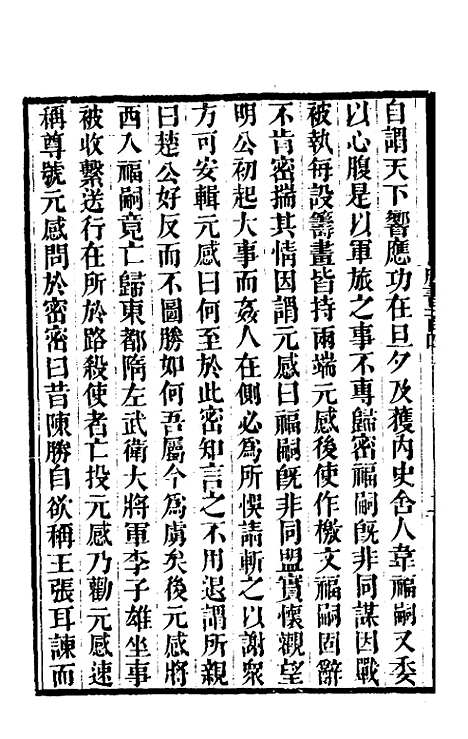 自謂天下響應功在旦夕及獲內史舍人韋福嗣又委
以心腹是以軍旅之事不專歸密福嗣旣非同謀因戰
被執每設籌畫皆持兩端元感後使作檄文福嗣固辭
不肯密揣其情因謂元感曰福嗣旣非同盟實懷觀望
明公初起大事而姦人在側必爲所悞請斬之以謝衆
方可安輯元感曰何至於此密知言之不用退謂所親
曰楚公好反而不圖勝如何吾屬今爲虜矣後元感將
西入福嗣竟亡歸東都隋左武衛大將軍李子雄坐事
被收繫送行在所於路殺使者亡投元感乃勸元感速
稱尊號元感問於密密曰昔陳勝自欲稱王張耳諫而